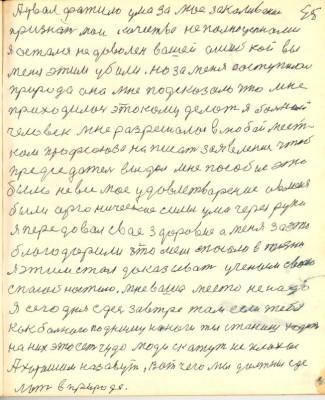 55
А у вас фатило ума за мое закаливание
признат мои качества не полноценными
я остался не доволен вашей ошибкой вы
меня этим убили. но за меня заступилась
природа она мне подсказала что мне
приходилось это кому делат я больной
человек мне разрешалось в любой мест
ком профсоюза написат заявление чтоб
председател выдал мне пособие это
было не мое удовлетварение а в меня
были органические силы ума через руки
я передовал свое здоровие а меня за это
благодорили что мои способы в жизни
я этим стал доказыват ученым свою
способностью. мне ваше место не надо
я сегодня здес завтра там если тебя
как больного подниму на ноги ты станеш ходит
на них это ест чудо люди скажут не плохо
А хорошим назавут, вот чего мы должны сде
лать в природе.